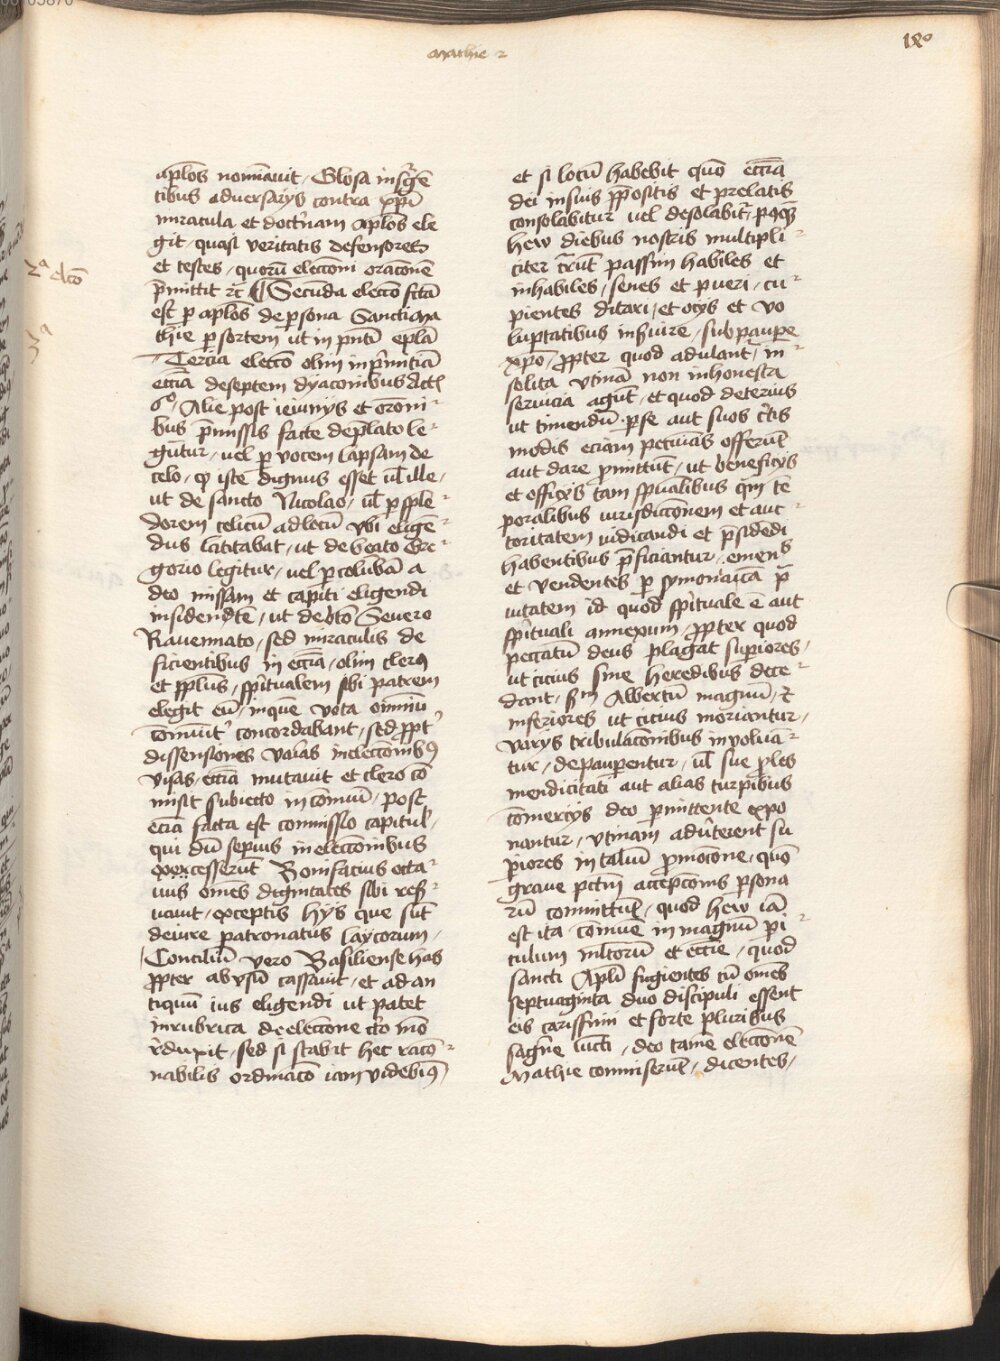 mathie 2
180
2ᵃ elcō
3ᵃ
aplōs nomīauit / Glosa insᵍgē
tibus adversarijs contra xp̄i
miracula et doctᵉnam aplōs ele
git / quasi veritatis defensores
et testes / quorū elecciōni oraciōnē
p̄mittit ꝛc̄ ¶ Secunda elecciō fctā
est ꝑ aplōs de ꝑsona Sancti ma
thie ꝑ sortem ut in pn̄ti epl̄a
Tercia elecciō olim in pᵉmitiā
ecc̄ia de septem dyaconibus Act̄
6° / Alie post ieiunijs et orōni
bus p̄missis facte de p̄lato le
gūtur / uel ꝑ vocem lapsam de
celo / ꝙ iste dignus esset ul̄ ille /
ut de sancto Nicolao / ul̄ ꝑ splē
dorem celicū ad locū vbi eligē
dus latitabat / ut de beato Gre
gorio legitur / uel ꝑ colūbā a
deo missam et capiti eligendi
insidendtē / ut de btō Seuero
Rauennato / sed miraculis de
ficientibus in ecc̄ia / olim clerꝰ
et pplūs / spᵉitualem sibi patrem
elegit eū / inque vota omniū
cōmuīt concordabant / sed ꝓpt᾽
dissensiones vaīas in elecciōnibꝰ
visas / ecc̄ia mutauit et clero cō
misit subiecto in cōmuī / post
ec̄iā facta est commissio capitul᾽
qui dū sepius in elecciōnibus
excesserūt Bonifacius octa
uus om̄es dignitates sibi res̄
uauit / exceptis hijs que sūt
de iure patronatus laycorum /
Conciliū vero Basiliense has
ꝓpter abusū cassauit / et ad an
tiquū ius eligendi ut patet
in rubrica de elecciōne cᵉto mō
rᵉduxit / sed si stabit hec raciō
nabilis ordinaciō iam videbiꝰ
et si locū habebit quō ecc̄ia
dei in suis p̄positis et prelatis
consolabitur uel desolabit᾽
hew diebus nostris multipli
citer cᵉrūt passim habiles et
inhabiles / senes et pueri / cu
pientes ditari / et ocijs et vo
luptatibus inseruire / sub paupe
xp̄o / ꝓpter quod adulant᾽ / in
solita vtinā non inhonesta
seruicia agūt / et quod deterius
ut timendū ꝑ se aut suos cᵉtis
modis eciam pecunias offerūt
aut dare ꝓmittūt / ut beneficijs
et officijs tam spūalibus q̄m tē
poralibus iurisdiccionem et auc
toritatem iudicandi et p̄sidēdi
habentibus p̄ficiantur / emens
et vendentes ꝑ symoniacā p̄
uitatem id quod spᵉituale ē aut
spᵉituali annexum / ꝓpter quod
peccatū deus plagat supiores /
ut cicius sine heredibus dece
dant / sᵐ Albertū magnū / ⁊
inferiores ut cicius moriantur /
varijs tribulaciōnibus inuoluā
tur / depauꝑentur / ul̄ sue ꝓles
mendicitati aut alias turpibus
cōmercijs deo ꝑmittente expo
nantur / vtinam aduᵉterent su
piores in taliū ꝓmociōne / quō
graue pctm̄ accepciōnis ꝑsona
rū committūt / quod hew iā
est ita cōmune in magnū pi
culum ml̄torū et ecc̄ie / quod
sancti Apl̄i fugientes cū om̄es
septuaginta duo discipuli essent
eis carissimi et forte pluribus
deo tamē elecciōnē
Mathie commiserūt / dicentes /